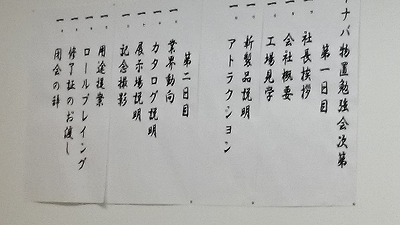 ナバ物置勉強会次第
第一日目
一、社長挨拶
一、会社概要
一、工場見学
一、新製品説明
一、アトラクション
第二日目
一、業界動向
一、カタログ説明
一、展示場説明
一、記念撮影
一、用途提案
一、ロールプレイング
一、修了証のお渡し
一、閉会の辞